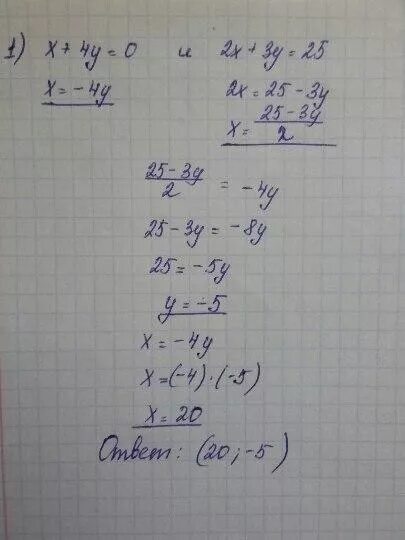 1) x + 4y = 0 и 2x + 3y = 25
x = -4y 2x = 25 - 3y
x = (25 - 3y)/2
(25 - 3y)/2 = -4y
25 - 3y = -8y
25 = -5y
y = -5
x = -4y
x = (-4) · (-5)
x = 20
Ответ: (20; -5)